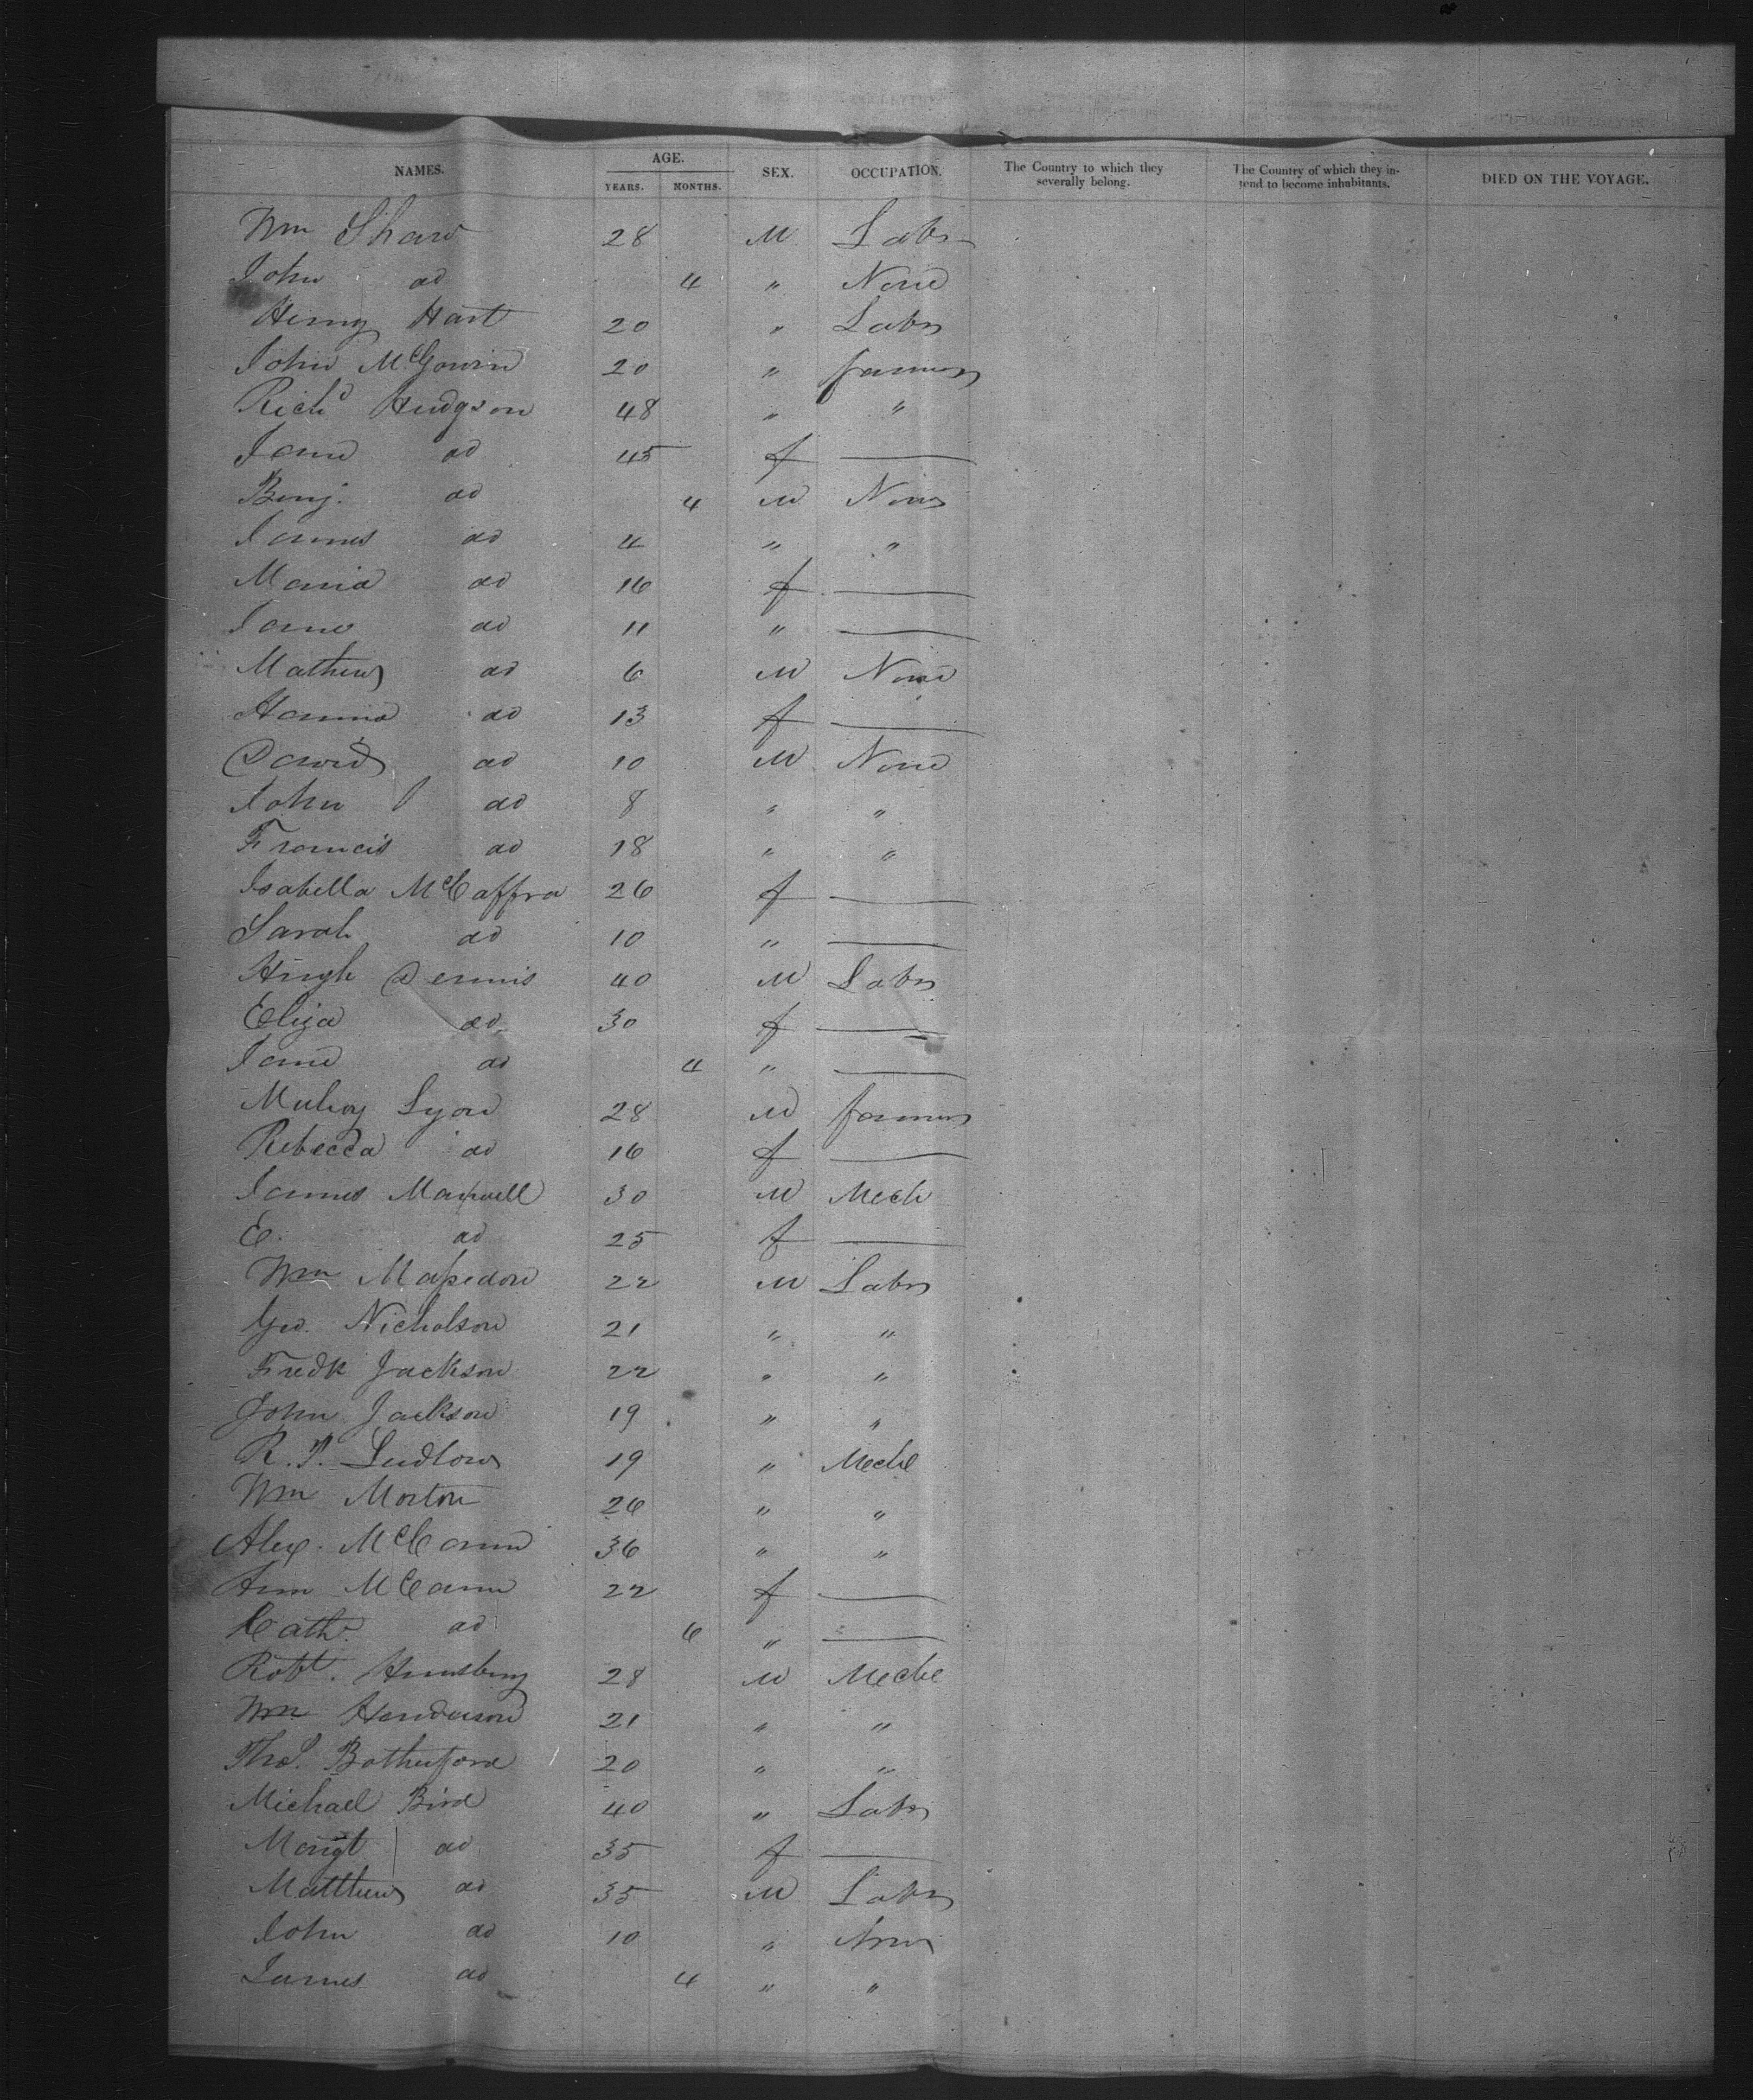 NAMES. AGE. SEX. OCCUPATION. The Country to which they severally belong. The Country of which they intend to become inhabitants. DIED ON THE VOYAGE.
YEARS. MONTHS.
Wm Shaw 28 M Labr
John do 4 " None
Henry Hart 20 " Labr
John McGowin 20 " farmer
Richd Hudgson 48 " "
Jane do 45 f —
Benj. do 4 M None
James do 4 " "
Maria do 16 f —
Jane do 11 " —
Mathew do 6 M None
Hanna do 13 f —
David do 10 M None
John do 8 " "
Francis do 18 " "
Isabella McCaffra 26 f —
Sarah do 10 " —
Hugh Dennis 40 M Labr
Eliza do 30 f —
Jane do 4 " —
Lyon 28 M farmer
Rebecca do 16 f —
James Maxwell 30 M Mech
E. do 25 f —
Wm 22 M Labr
Geo. Nicholson 21 " "
Fredk Jackson 22 " "
John Jackson 19 " "
R. P. Ludlow 19 " Mech
Wm Morton 26 " "
Alex. McCann 36 " "
Ann McCann 22 f —
Cath. do 6 " —
Robt. 28 M Mech
Wm Henderson 21 " "
Thos. 20 " "
Michael Bird 40 " Labr
Margt do 35 f —
Matthew do 35 M Labr
John do 10 " None
James do 4 " "